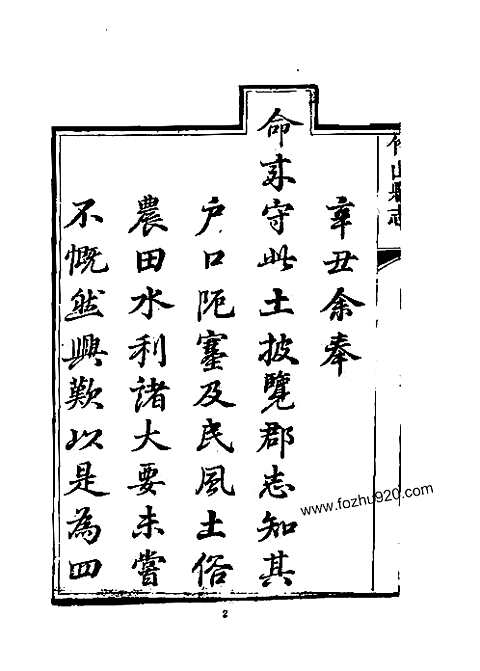 竹山縣志
辛丑余奉
命來守此土披覽郡志知其
戶口阨塞及民風土俗
農田水利諸大要未嘗
不慨然興歎以是為四
www.fozhu920.com
2